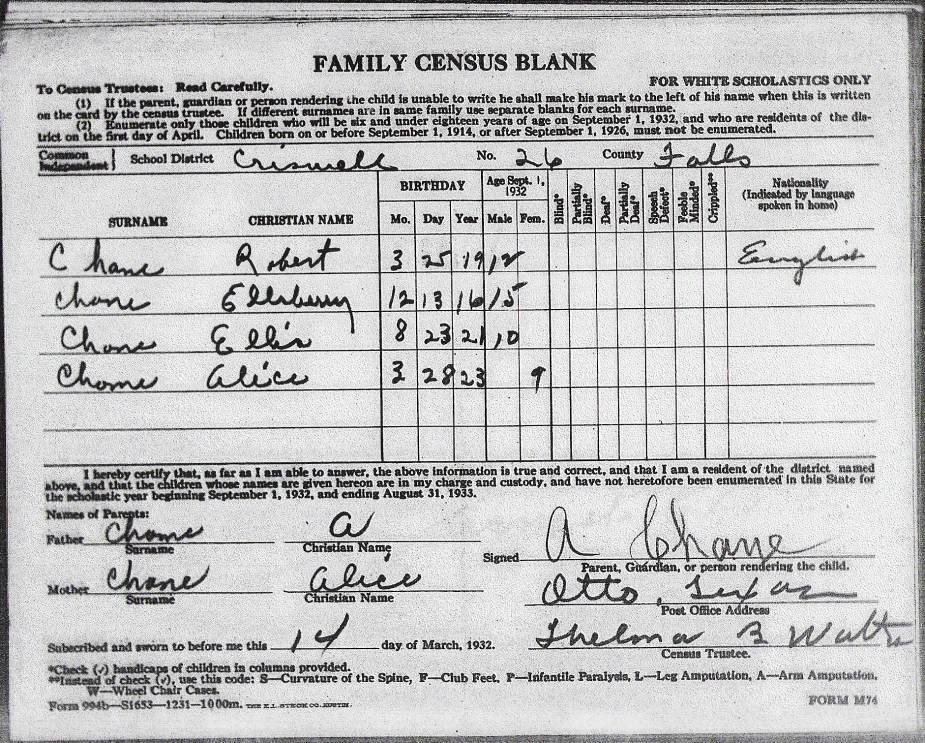 FAMILY CENSUS BLANK
To Census Trustees: Read Carefully. FOR WHITE SCHOLASTICS ONLY
(1) If the parent, guardian or person rendering the child is unable to write he shall make his mark to the left of his name when this is written
on the card by the census trustee. If different surnames are in same family use separate blanks for each surname.
(2) Enumerate only those children who will be six and under eighteen years of age on September 1, 1932, and who are residents of the dis-
trict on the first day of April. Children born on or before September 1, 1914, or after September 1, 1926, must not be enumerated.
Common
Independent } School District Criswell No. 26 County Falls
SURNAME CHRISTIAN NAME BIRTHDAY Mo. Day Year Age Sept. 1, 1932 Male Fem. Blind* Partially Blind* Deaf* Partially Deaf* Speech Defect* Feeble Minded* Crippled** Nationality (Indicated by language spoken in home)
Chane Robert 3 25 19 12 English
Chane Ellsberry 12 13 16 15
Chane Ellis 8 23 21 10
Chane Alice 3 28 23 9
I hereby certify that, as far as I am able to answer, the above information is true and correct, and that I am a resident of the district named
above, and that the children whose names are given hereon are in my charge and custody, and have not heretofore been enumerated in this State for
the scholastic year beginning September 1, 1932, and ending August 31, 1933.
Names of Parents:
Father Chane A Signed A Chane
Surname Christian Name Parent, Guardian, or person rendering the child.
Mother Chane Alice Otto, Texas
Surname Christian Name Post Office Address
Subscribed and sworn to before me this 14 day of March, 1932. Thelma B
Census Trustee.
*Check (✓) handicaps of children in columns provided.
**Instead of check (✓), use this code: S—Curvature of the Spine, F—Club Feet, P—Infantile Paralysis, L—Leg Amputation, A—Arm Amputation,
W—Wheel Chair Cases.
Form 994b—S1653—1231—1000m. THE E.L. STECK CO. AUSTIN. FORM M74